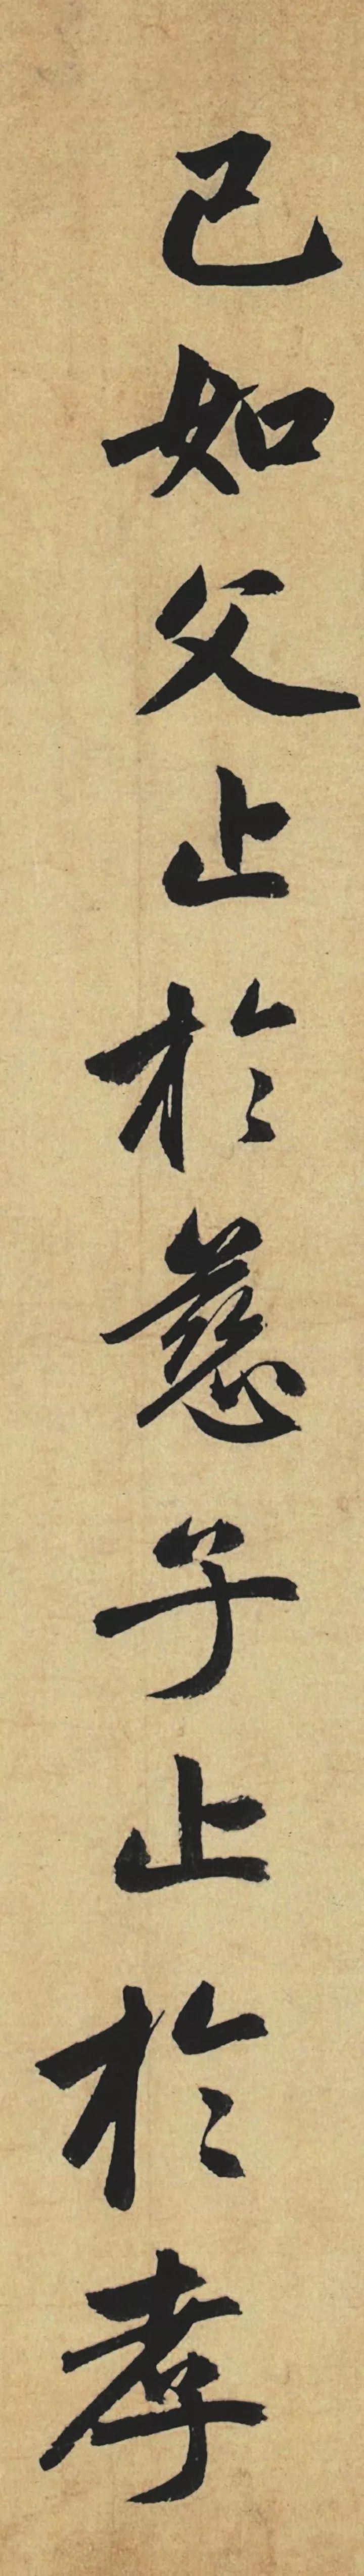 已如父止於慈子止於孝